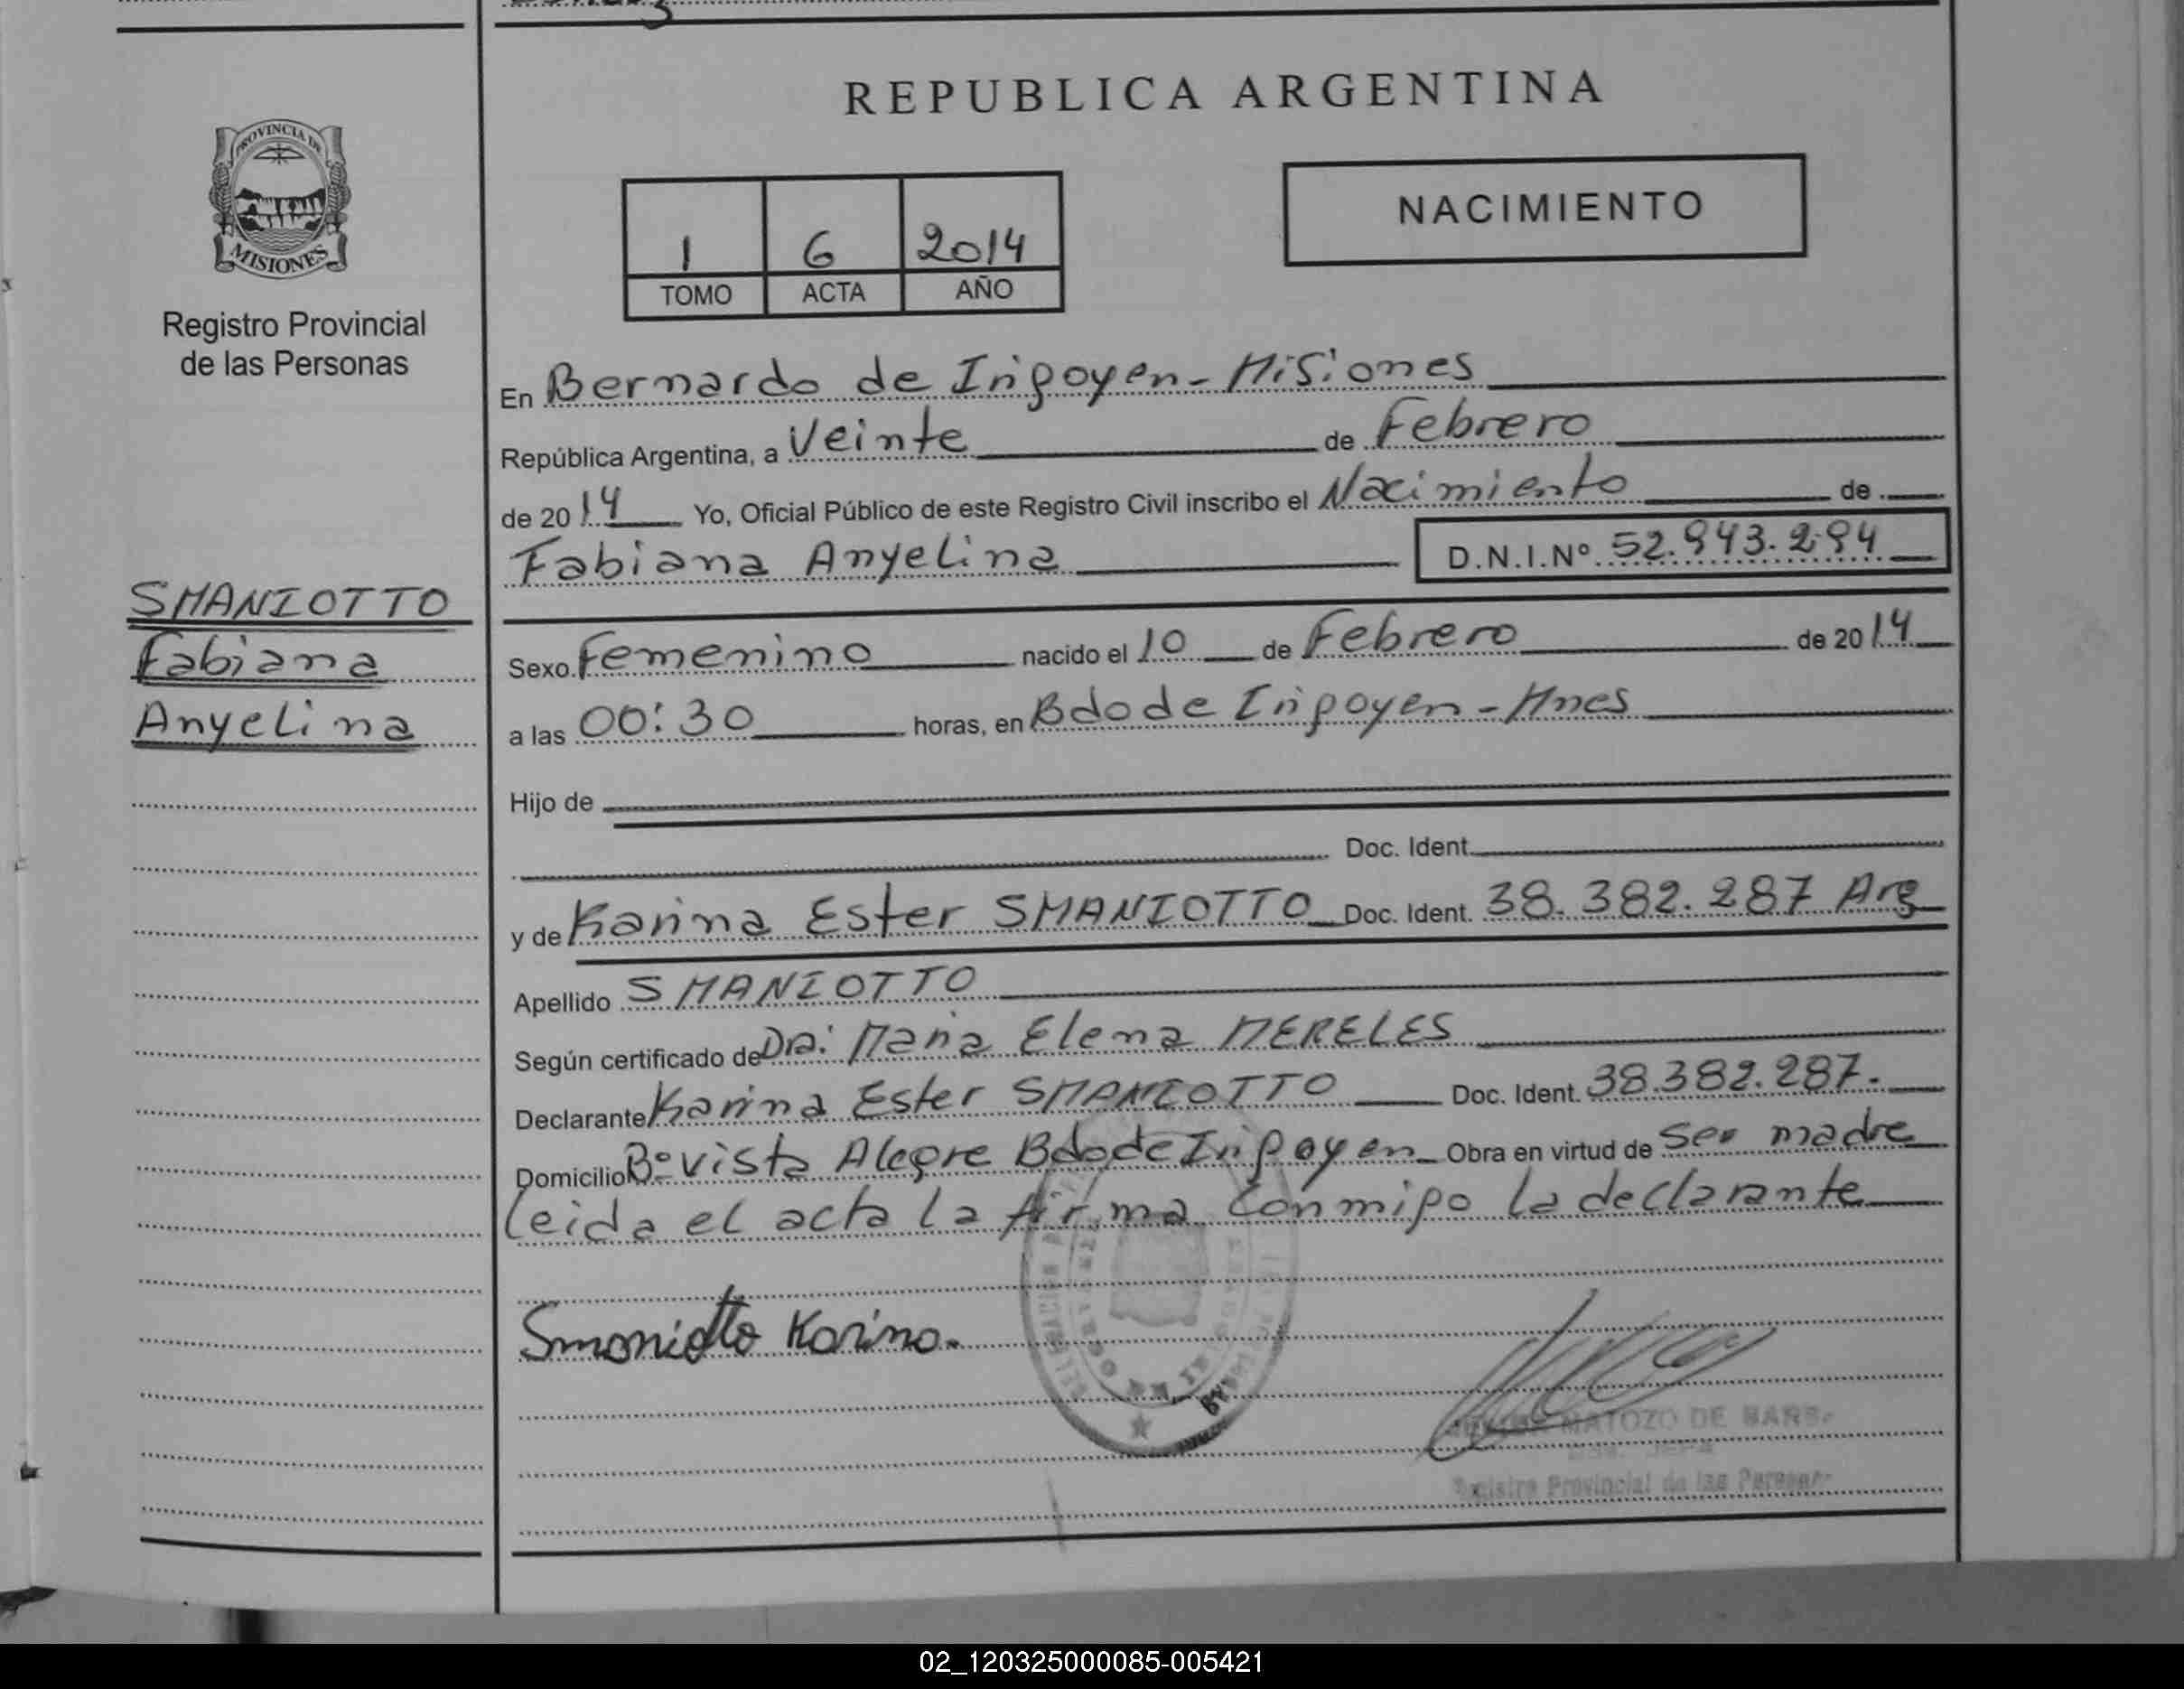 REPUBLICA ARGENTINA
PROVINCIA DE
MISIONES
Registro Provincial
de las Personas
1 6 2014
TOMO ACTA AÑO
NACIMIENTO
En Bernardo de Irigoyen - Misiones
República Argentina, a Veinte de Febrero
de 2014 Yo, Oficial Público de este Registro Civil inscribo el Nacimiento de
Fabiana Anyelina D.N.I.Nº 52.943.294
SMANIOTTO
Fabiana
Anyelina
Sexo Femenino nacido el 10 de Febrero de 2014
a las 00:30 horas, en Bdo de Irigoyen - Mnes
Hijo de
Doc. Ident.
y de Karina Ester SMANIOTTO Doc. Ident. 38.382.287 Arg
Apellido SMANIOTTO
Según certificado de Dra: Maria Elena MERELES
Declarante Karina Ester SMANIOTTO Doc. Ident. 38.382.287.
Domicilio Bº Vista Alegre Bdo de Irigoyen Obra en virtud de Ser madre
Leida el acta la firma conmigo la declarante
Smaniotto Karina.
MATOZO DE BARB
Registro Provincial de las Person
02_120325000085-005421